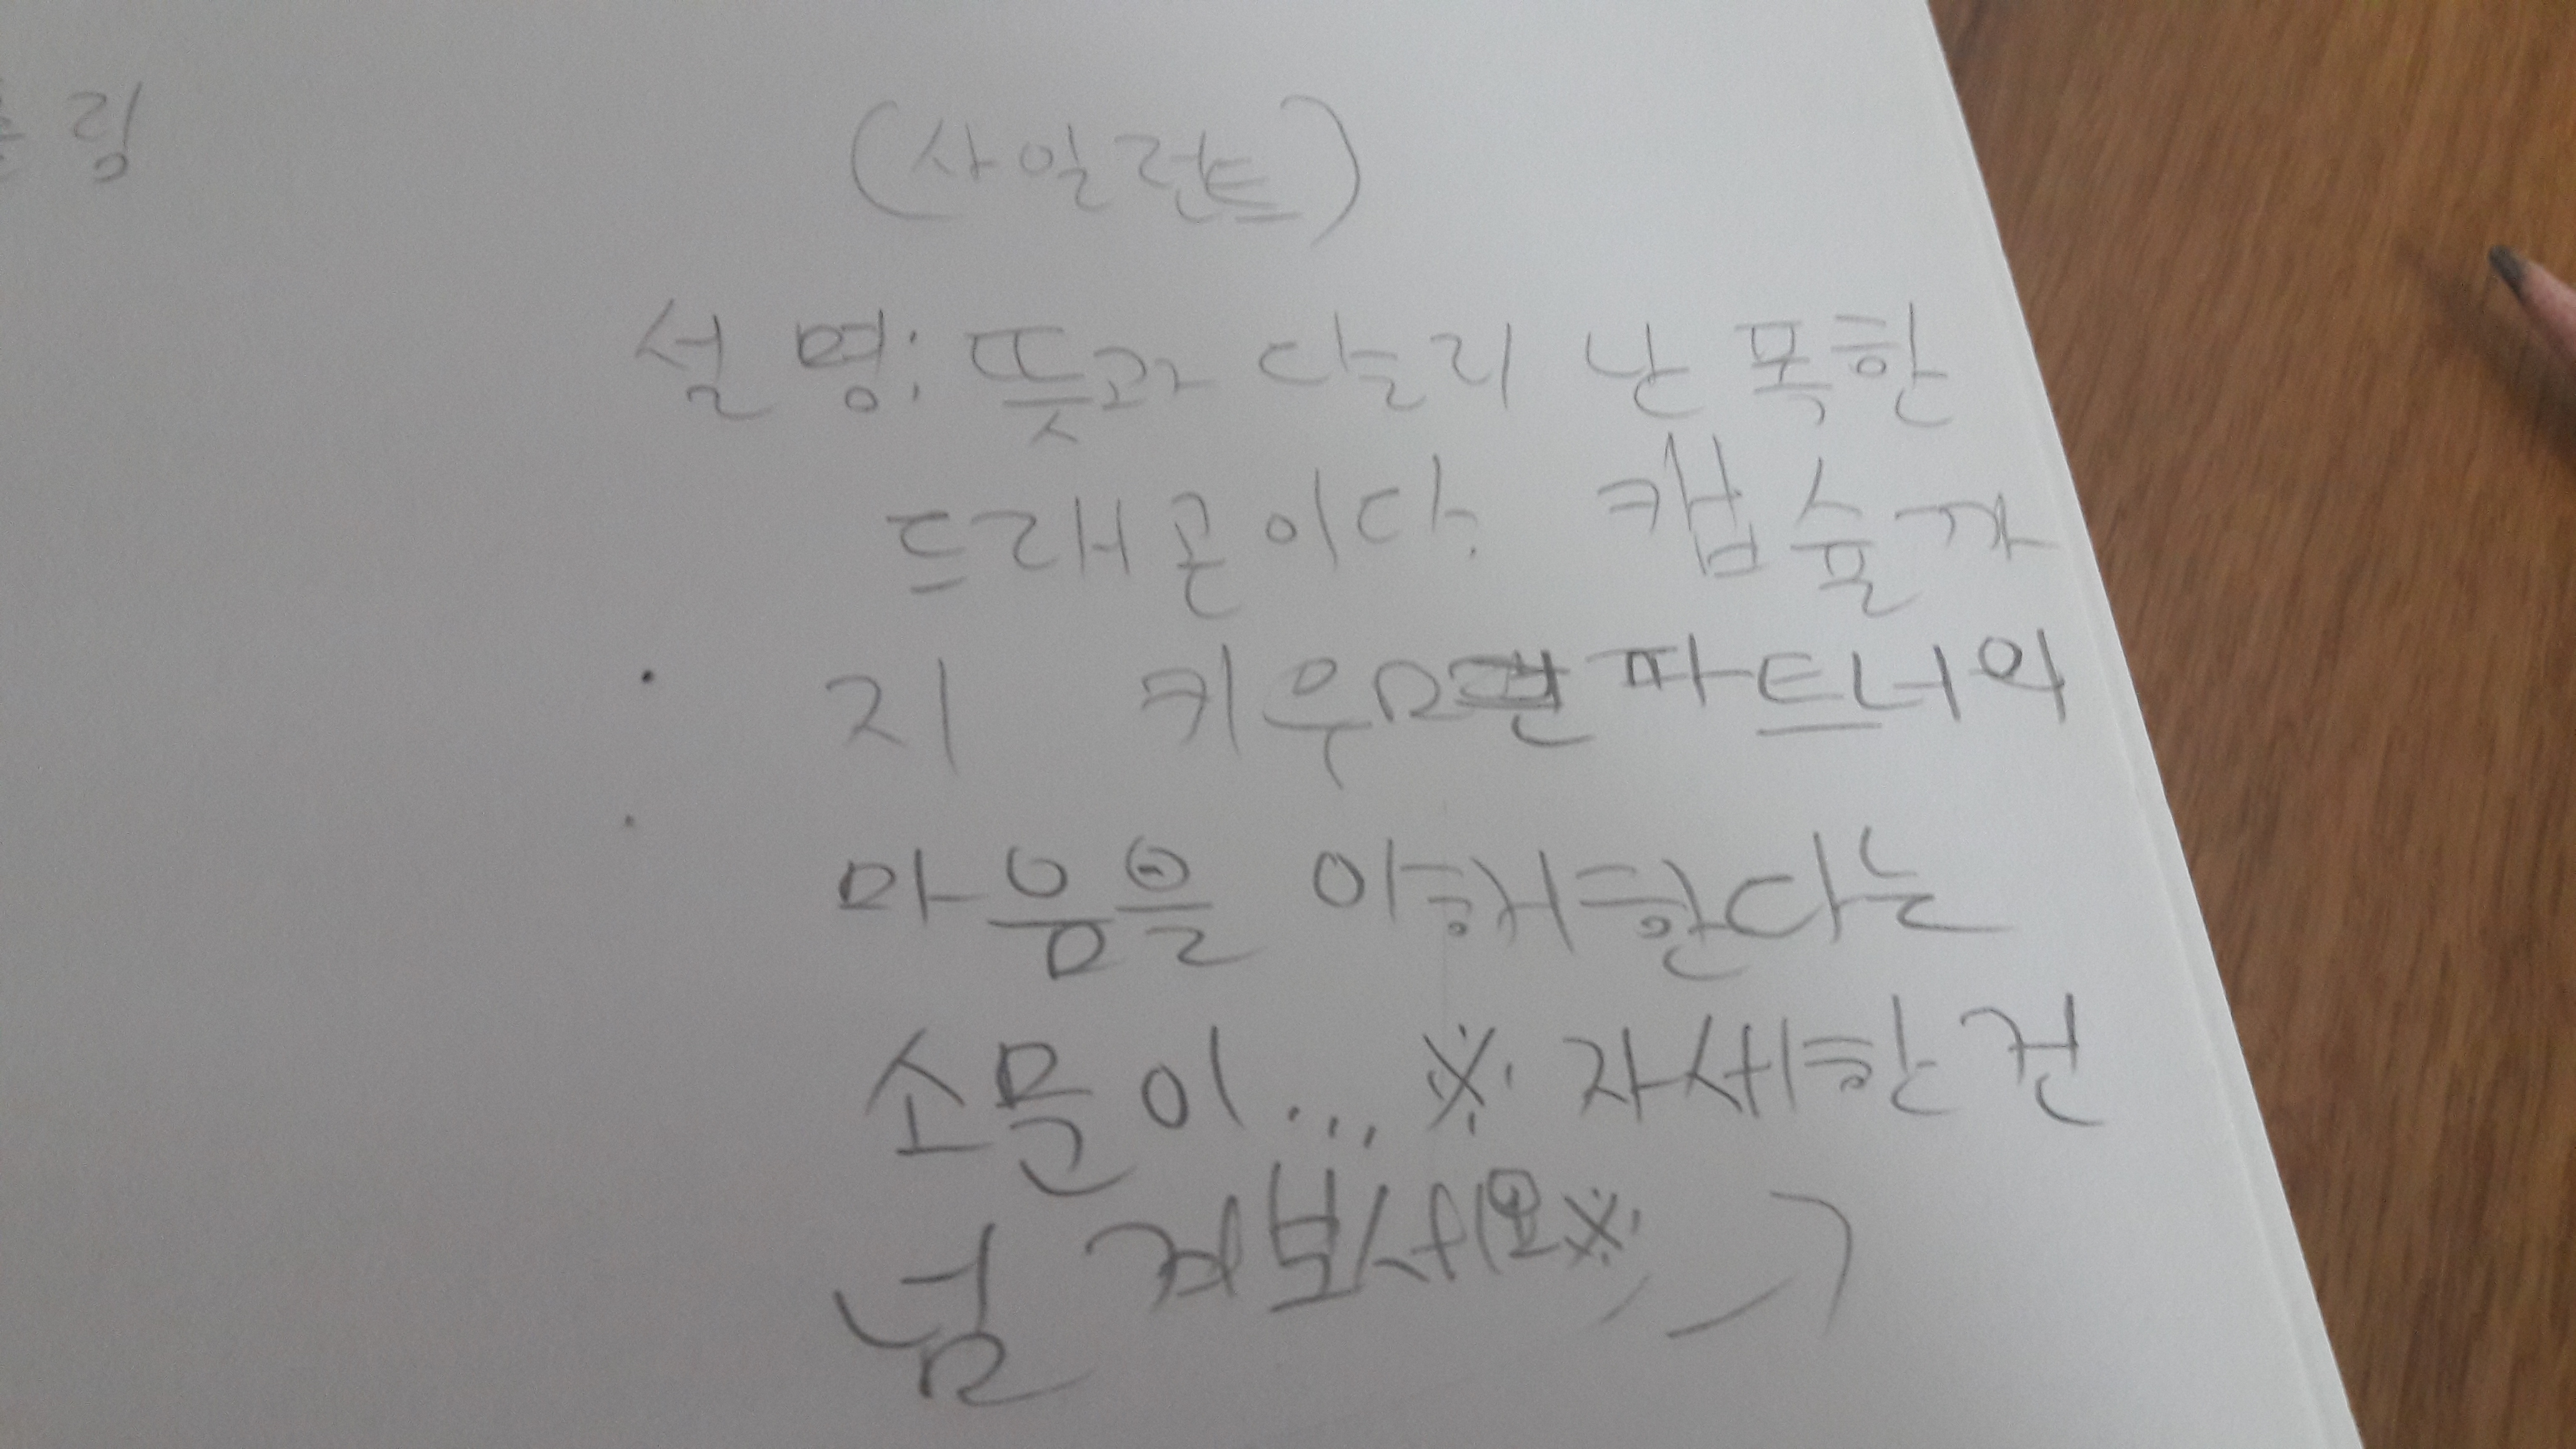 링
(사일런트)
설명: 뜻과 달리 난폭한
드래곤이다. 캡슐까
지 키우면 파트너의
마음을 이해한다는
소문이... ※ 자세한 건
넘겨보세요※